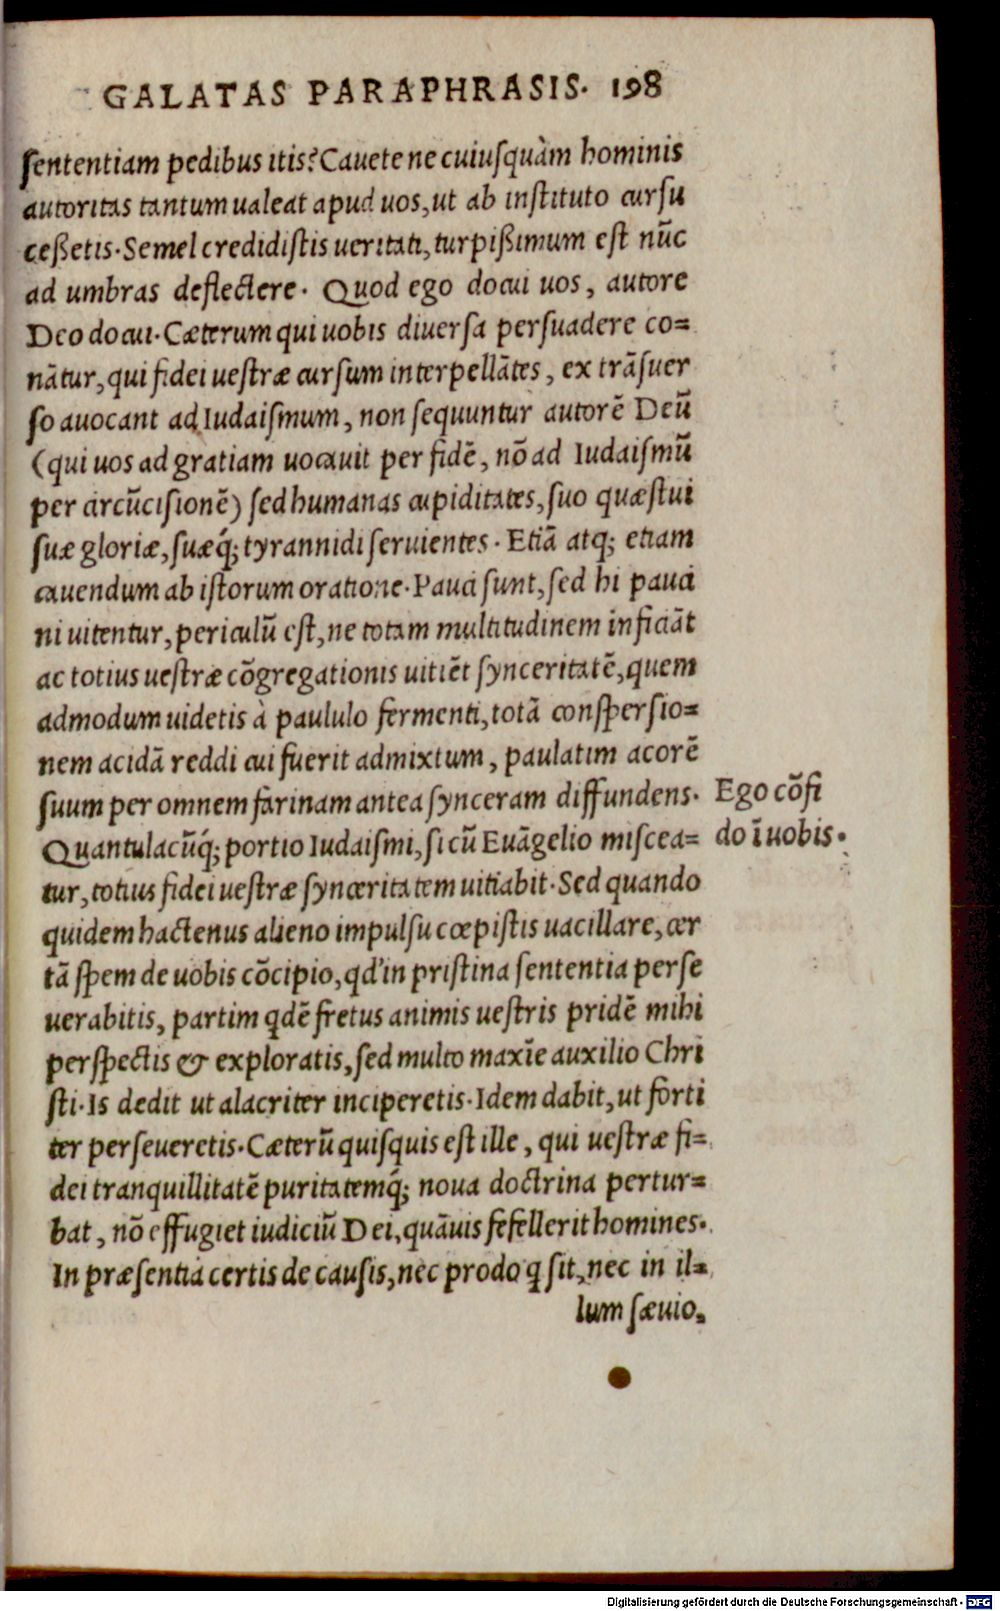 GALATAS PARAPHRASIS. 198
sententiam pedibus itis? Cauete ne cuiusquàm hominis
autoritas tantum ualeat apud uos, ut ab instituto cursu
ceßetis. Semel credidistis ueritati, turpißimum est nūc
ad umbras deflectere. Quod ego docui uos, autore
Deo docui. Cæterum qui uobis diuersa persuadere co=
nātur, qui fidei uestræ cursum interpellātes, ex trāsuer
so auocant ad Iudaismum, non sequuntur autorē Deū
(qui uos ad gratiam uocauit per fidē, nō ad Iudaismū
per circūcisionē) sed humanas cupiditates, suo quæstui
suæ gloriæ, suæq́; tyrannidi seruientes. Etiā atq; etiam
cauendum ab istorum oratione. Pauci sunt, sed hi pauci
ni uitentur, periculū est, ne totam multitudinem inficiāt
ac totius uestræ cōgregationis uitiēt synceritatē, quem
admodum uidetis à paululo fermenti, totā conspersio=
nem acidā reddi cui fuerit admixtum, paulatim acorē
suum per omnem farinam antea synceram diffundens.
Ego cōfi
do ī uobis.
Quantulacūq́; portio Iudaismi, si cū Euāgelio miscea=
tur, totius fidei uestræ synceritatem uitiabit. Sed quando
quidem hactenus alieno impulsu cœpistis uacillare, cer
tā spem de uobis cōcipio, qd' in pristina sententia perse
uerabitis, partim qdē fretus animis uestris pridē mihi
perspectis & exploratis, sed multo maxīe auxilio Chri
sti. Is dedit ut alacriter inciperetis. Idem dabit, ut forti
ter perseueretis. Cæterū quisquis est ille, qui uestræ fi=
dei tranquillitatē puritatemq́; noua doctrina pertur=
bat, nō effugiet iudiciū Dei, quāuis fefellerit homines.
In præsentia certis de causis, nec prodo q sit, nec in il=
lum sæuio.
Digitalisierung gefördert durch die Deutsche Forschungsgemeinschaft - DFG